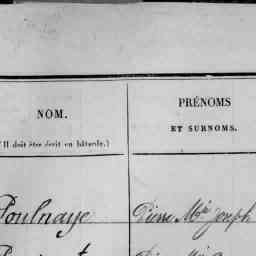 NOM.
(Il doit être écrit en bâtarde.)
PRÉNOMS
ET SURNOMS.
Poulnaye
Pierre Mie Joseph